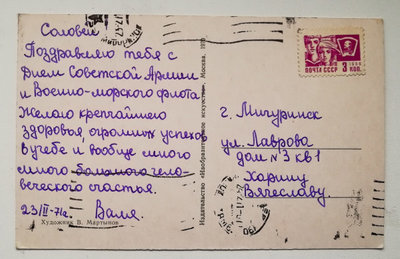 Соловей
Поздравляю тебя с
Днем Советской Армии
и Военно-морского флота
Желаю крепчайшего
здоровья огромных успехов
в учебе и вообще много
много большого чело-
веческого счастья.
23/II-71г. Валя.
Художник В. Мартынов
Издательство «Изобразительное искусство». Москва. 1970
1966
ПОЧТА СССР 3 КОП.
г. Мичуринск
ул. Лаврова
дом №3 кв 1
Харину
Вячеславу